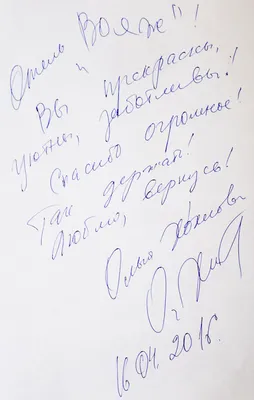 Отель "Вояж"!
Вы прекрасны,
уютны, заботливы!!
Спасибо огромное!
Так держать!
Люблю, вернусь!
Ольга
16.04.2016.